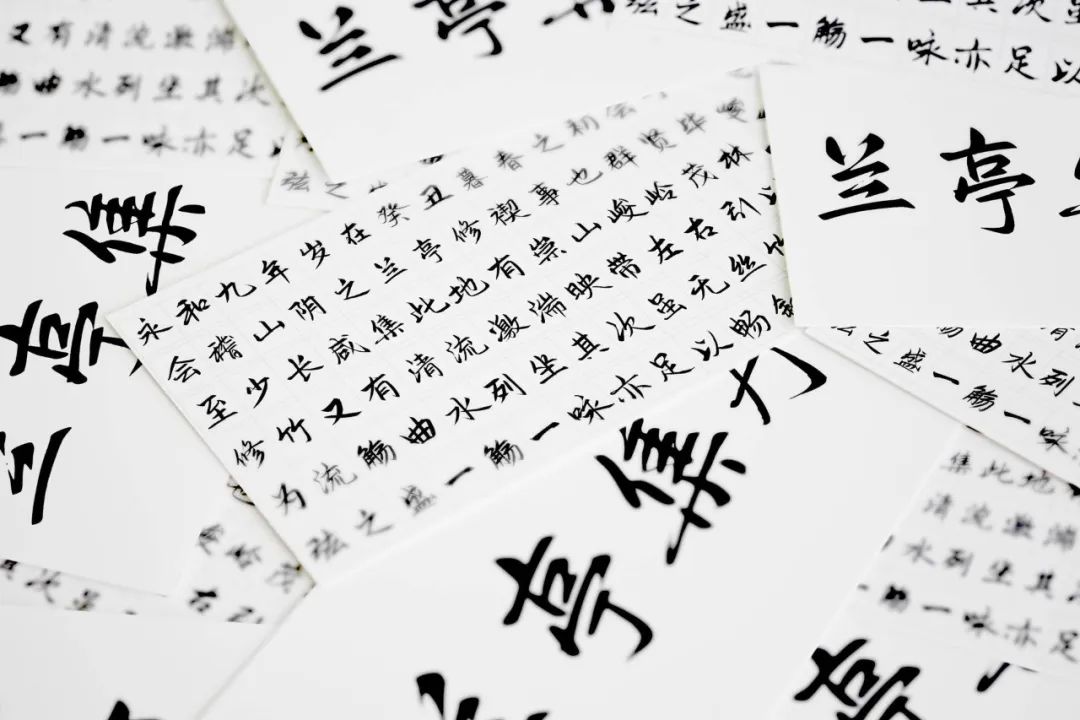 又有清流激湍
觞曲水列坐其次
一觞一咏亦足
兰亭
其次
弦之盛一觞一咏亦足以
弦之
兰亭
亭集
永和九年岁在癸丑暮春之初会
会稽山阴之兰亭修禊事也群贤毕
至少长咸集此地有崇山峻岭茂林
修竹又有清流激湍映带左右引以
为流觞曲水列坐其次虽无丝竹
弦之盛一觞一咏亦足以畅叙
亭集
曲水列
之盛一觞一咏
集此地
清流激湍
水列坐其
一觞一咏亦足
亭